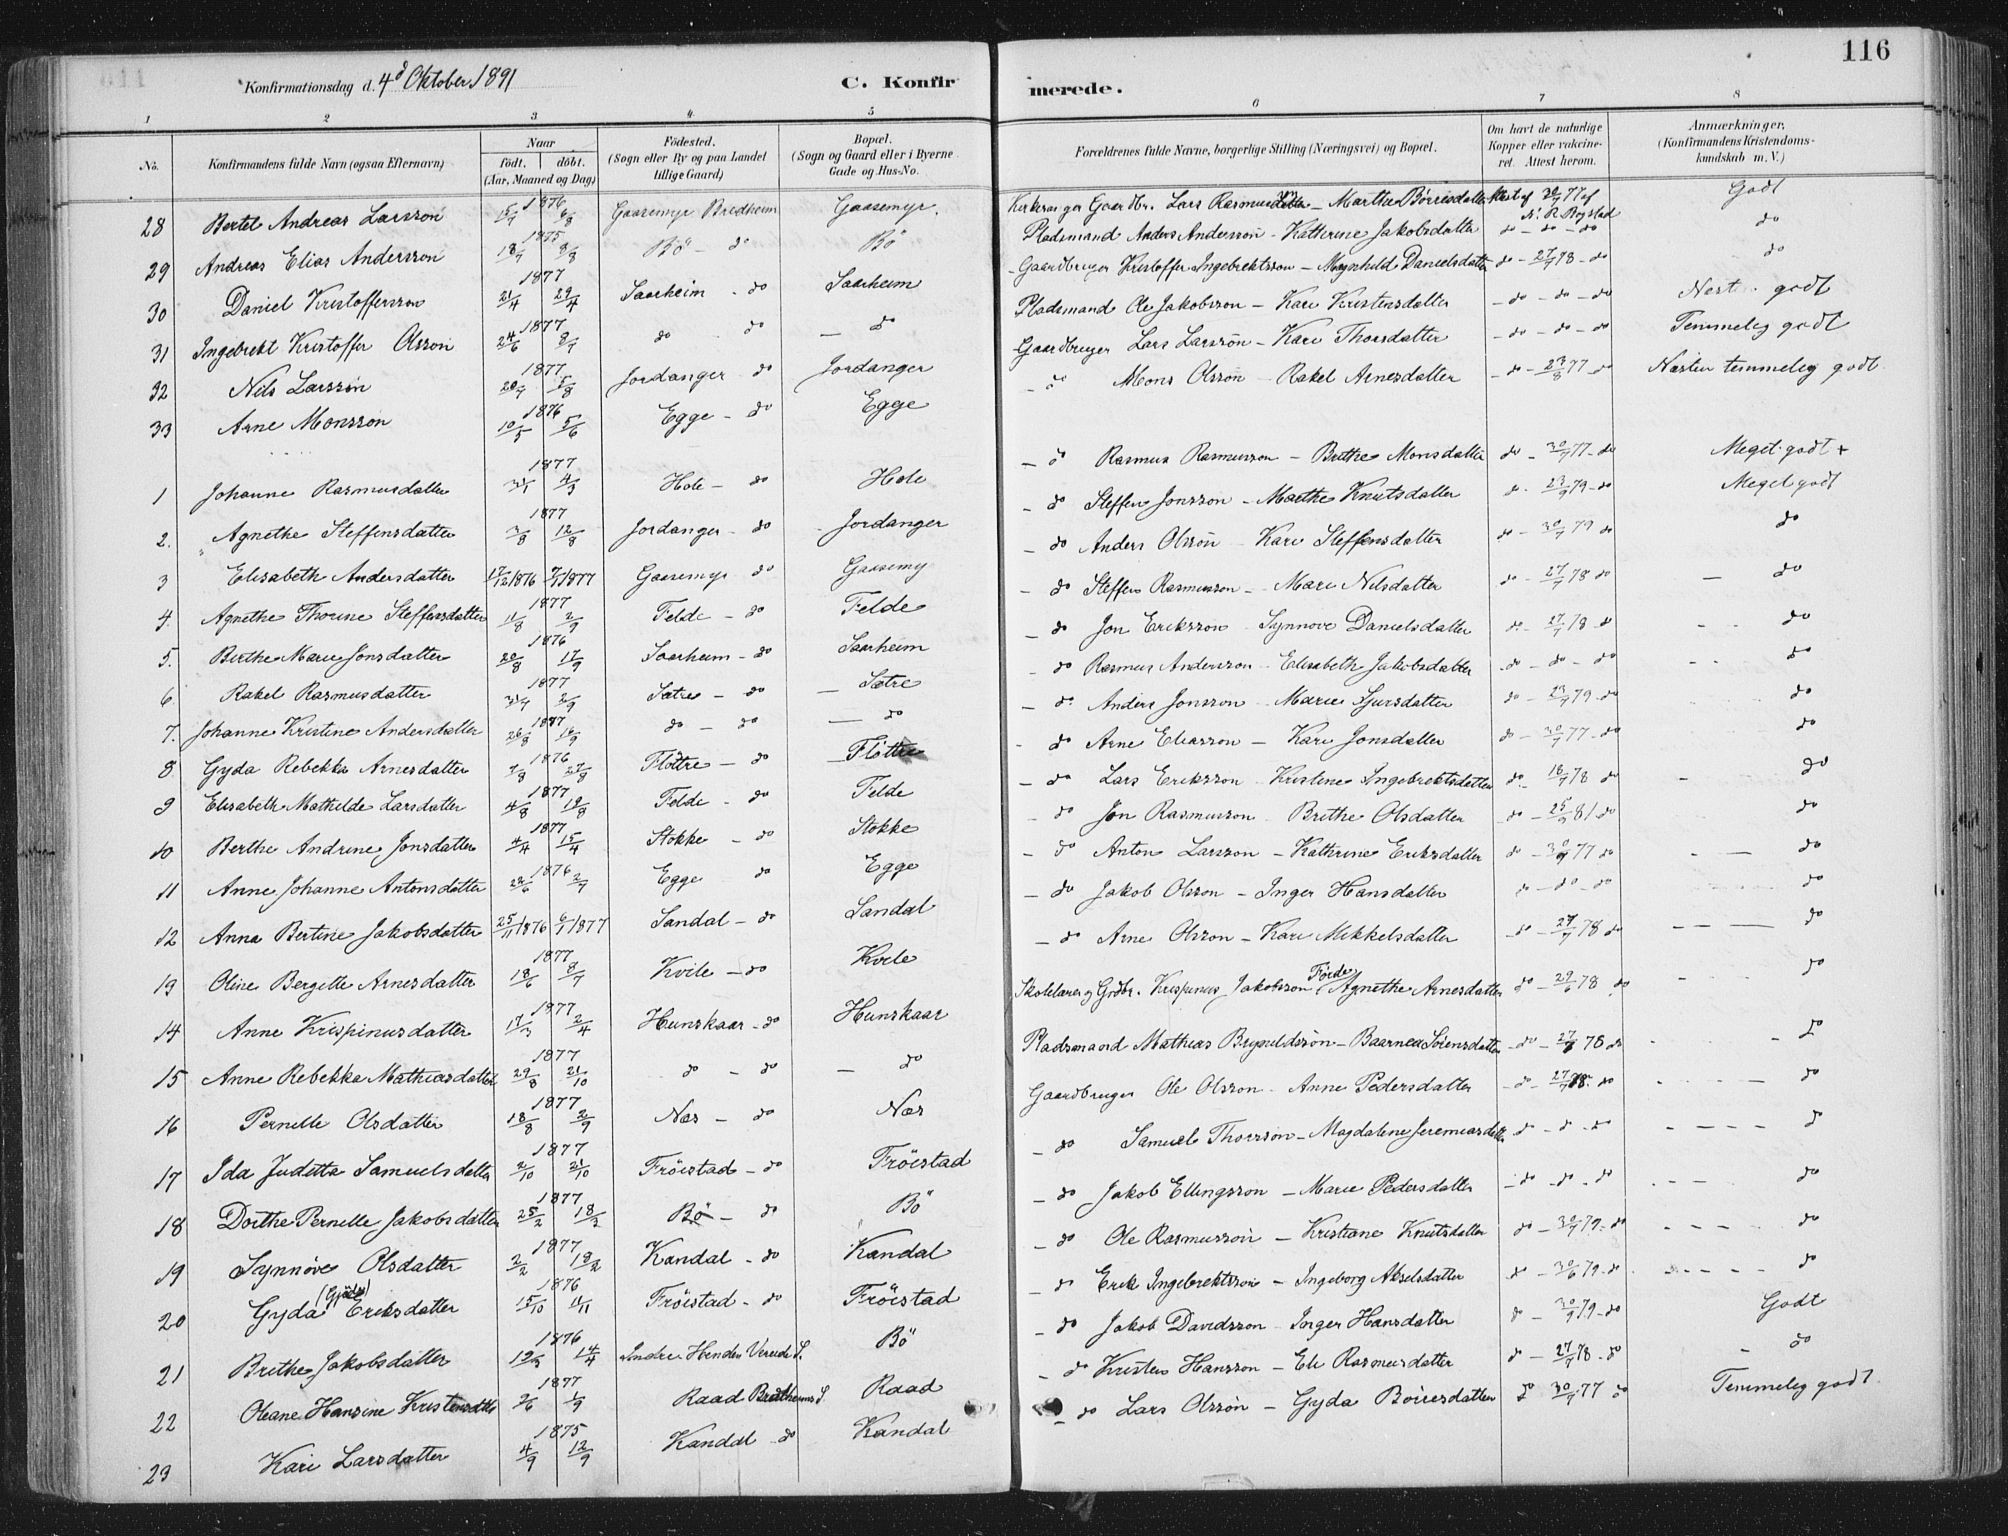 116
Konfirmationsdag d. 4d Oktober 1891
C. Konfirmerede.
1 2 3 4 5 6 7 8
No. Konfirmandens fulde Navn (ogsaa Efternavn) Naar født. døbt. (Aar, Maaned og Dag) Födested. (Sogn eller By og paa Landet tillige Gaard) Bopæl. (Sogn og Gaard eller i Byerne Gade og Hus-No. Forældrenes fulde Navne, borgerlige Stilling (Næringsvei) og Bopæl. Om havt de naturlige Kopper eller vakcineret. Attest herom. Anmærkninger, (Konfirmandens Kristendomskundskab m. V.)
28 Bertel Andreas Larssön 1876 6/8 Gaasemyr Bredheim Gaasemyr. Gaardbr. Lars Rasmus - Marthe Börresdatter Attest af 30/7 77 af N. R. Rogstad Godt
29 Andreas Elias Anderssön 1875 18/7 8/8 Bö - do Bö Pladsmand Anders Anderssön - Kathrine Jakobsdatter do - do - do do
30 Daniel Kristofferssön 1877 21/4 29/4 Saarheim - do Saarheim Gaardbruger Kristoffer Ingebrektsson - Magnhild Danielsdatter do - 27/7 78 - do do
31 Ingebrekt Kristoffer Olsson 1877 24/6 8/7 do do - do Pladsmand Ole Jakobsson - Kari Kristensdatter - do - do - do Næst. godt
32 Nils Larssön 1877 20/7 5/8 Jordanger - do Jordanger Gaardbruger Lars Larssön - Kari Thorsdatter - do - do - do Temmelig godt
33 Arne Monsson 1876 10/5 5/6 Egge - do Egge - do Mons Olsson - Rakel Arnesdatter - do - 23/8 77 - do Næsten temmelig godt
1 Johanne Rasmusdatter 1877 31/1 4/3 Hole - do Hole - do Rasmus Rasmusson - Brithe Monsdatter do - 30/7 77 - do Meget godt +
2. Agnethe Steffensdatter 1877 3/8 12/8 Jordanger - do Jordanger - do Steffen Jonsson - Marthe Knutsdatter do - 23/9 79 - do Meget godt
3 Elisabeth Andersdatter 17/12 1876 7/1 1877 Gaasemyr do Gaasemy - do Anders Olssön - Kari Steffensdatter do - 30/7 79 do do
4. Agnethe Thorine Steffensdatter 1877 11/8 2/9 Felde - do Felde - do Steffen Rasmusson - Mari Nilsdatter do - 27/7 78 do - do
5. Birthe Marie Jonsdatter 1876 20/8 17/9 Saarheim - do Saarheim - do Jon Eriksson - Synnove Danielsdatter do - 27/7 78 - do do
6 Rakel Rasmusdatter 1877 31/7 2/9 Sætre - do - Sætre - do Rasmus Andersson - Elisabeth Jakobsdatter - do - do - do do
7. Johanne Kristine Andersdatter 1877 26/8 16/9 do - do - do - do Anders Jonsson - Marie Sjursdatter do - 23/9 79 - do do
8 Gyda Rebekka Arnesdatter 1876 7/8 27/8 Flöttre - do Flöttre - do Arne Eliasson - Kari Jonsdatter do - 30/7 77 - do do
9 Elisabeth Mathilde Larsdatter 1877 4/8 19/8 Felde - do Felde - do Lars Eriksson - Kristine Ingebrektsdatter do - 18/7 78 do do
10 Berthe Andrine Jonsdatter 1877 4/4 15/4 Stokke - do Stokke - do Jon Rasmusson - Brithe Olsdatter do - 25/9 81 - do do
11 Anne Johanne Antonsdatter 1876 24/6 2/7 Egge do Egge - do Anton Larsson - Kathrine Eriksdatter do - 30/7 77 do do
12 Anna Bertine Jakobsdatter 25/11 1876 6/1 1877 Sandal - do Sandal - do Jakob Olsson - Inger Hansdatter do - do - do do
13 Oline Bergitte Arnesdatter 1877 18/6 8/7 Kvile - do Kvile - do Arne Olsson - Kari Mikkelsdatter - do - 27/7 78 do do
14 Anne Krispinusdatter 1877 17/3 2/4 Hunskaar - do Hunskaar Skolelærer og Grdbr. Krispinus Jakobsson Förde, Agnethe Arnesdatter do - 29/6 78 do do
15 Anne Rebekka Mathiasdatter 1877 29/8 21/10 do - do - do Pladsmand Mathias Brynildssön - Baarnea Sörensdatter - do - 27/7 78 do do
16 Pernille Olsdatter 1877 18/8 2/9 Næs - do Næs Gaardbruger Ole Olsson - Anne Pedersdatter - do - 27/7 78. do do
17 Ida Judetta Samuelsdatter 1877 2/10 21/10 Fröistad - do Fröistad - do Samuel Thorsson - Magdalene Jeremiasdatter do - do - do do
18 Dorthe Pernille Jakobsdatter 1877 25/2 18/3 Bö - do Bö - do Jakob Ellingsson - Marie Pedersdatter - do - do - do do
19 Synnöve Olsdatter 1877 2/2 18/2 Kandal - do Kandal - do Ole Rasmussön - Kristiane Knutsdatter do - 30/7 79 - do do
20 Gyda (Gjöda) Eriksdatter 1876 15/10 11/11 Fröistad - do Fröistad - do Erik Ingebrektssön - Ingeborg Akselsdatter do - 30/6 79 - do do
21 Brithe Jakobsdatter 1876 19/3 14/4 Indre Henden Vereide S. Bö - do Jakob Davidsson - Inger Hansdatter do - 30/9 79 - do Godt
22 Oleane Hansine Kristensdtr 1877 2/6 1/9 Raad Bredheims S Raad - do Kristen Hansson - Eli Rasmusdatter do - 27/7 78 - do - do
23 Kari Larsdatter 1875 4/9 12/9 Kandal - do Kandal - do Lars Olssön - Gyda Böiresdatter do 30/7 77 do Temmelig godt